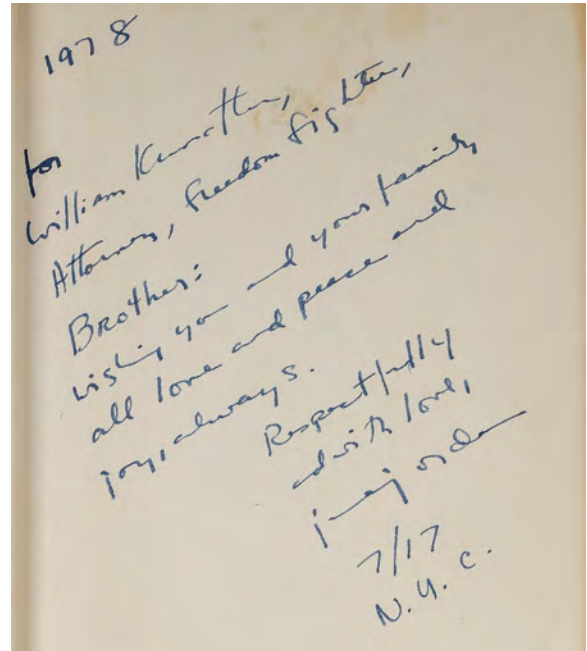 1978
for
William Kunstler,
Attorney, freedom fighter,
Brother:
wishing you and your family
all love and peace and
joy, always.
Respectfully
and with love,
june jordan
7/17
N.Y.C.